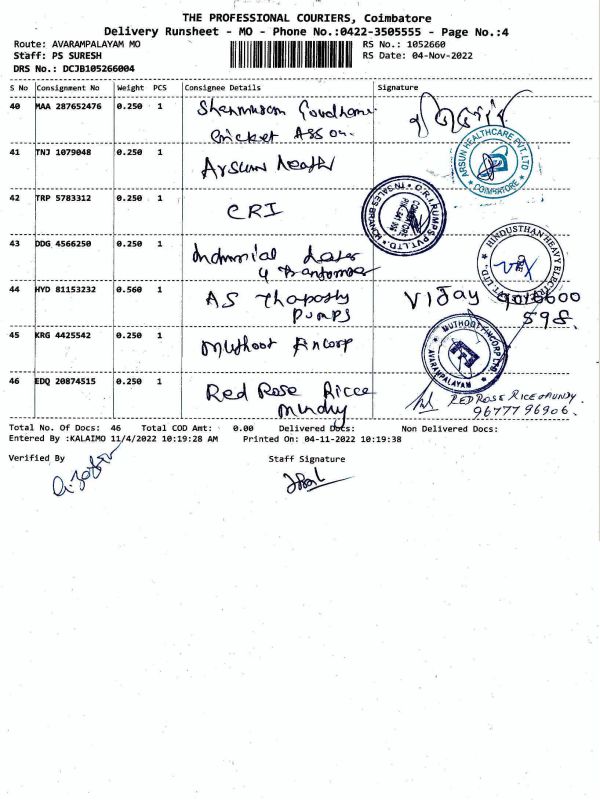 THE PROFESSIONAL COURIERS, Coimbatore
Delivery Runsheet - MO - Phone No.:0422-3505555 - Page No.:4
Route: AVARAMPALAYAM MO
RS No.: 1052660
Staff: PS SURESH
RS Date: 04-Nov-2022
DRS No.: DCJB105266004
S No Consignment No Weight PCS Consignee Details Signature
40 MAA 287652476 0.250 1
Cricket
ARSUN HEALTHCARE PVT. LTD
COIMBATORE
41 TNJ 1079048 0.250 1 Arsun
42 TRP 5783312 0.250 1 CRI
C.R.I. PUMPS PVT. LTD.
43 DDG 4566250 0.250 1
HINDUSTHAN HEAVY
44 HYD 81153232 0.560 1 AS
PUMPS
VIJAY
598.
45 KRG 4425542 0.250 1 Muthoot Fincorp
MUTHOOT FINCORP LTD.
AVARAMPALAYAM
46 EDQ 20874515 0.250 1 Red Rose Ricce
Mundry
RED ROSE RICE MUNDY.
9677796906.
Total No. Of Docs: 46 Total COD Amt: 0.00 Delivered Docs: Non Delivered Docs:
Entered By :KALAIMO 11/4/2022 10:19:28 AM Printed On: 04-11-2022 10:19:38
Verified By Staff Signature